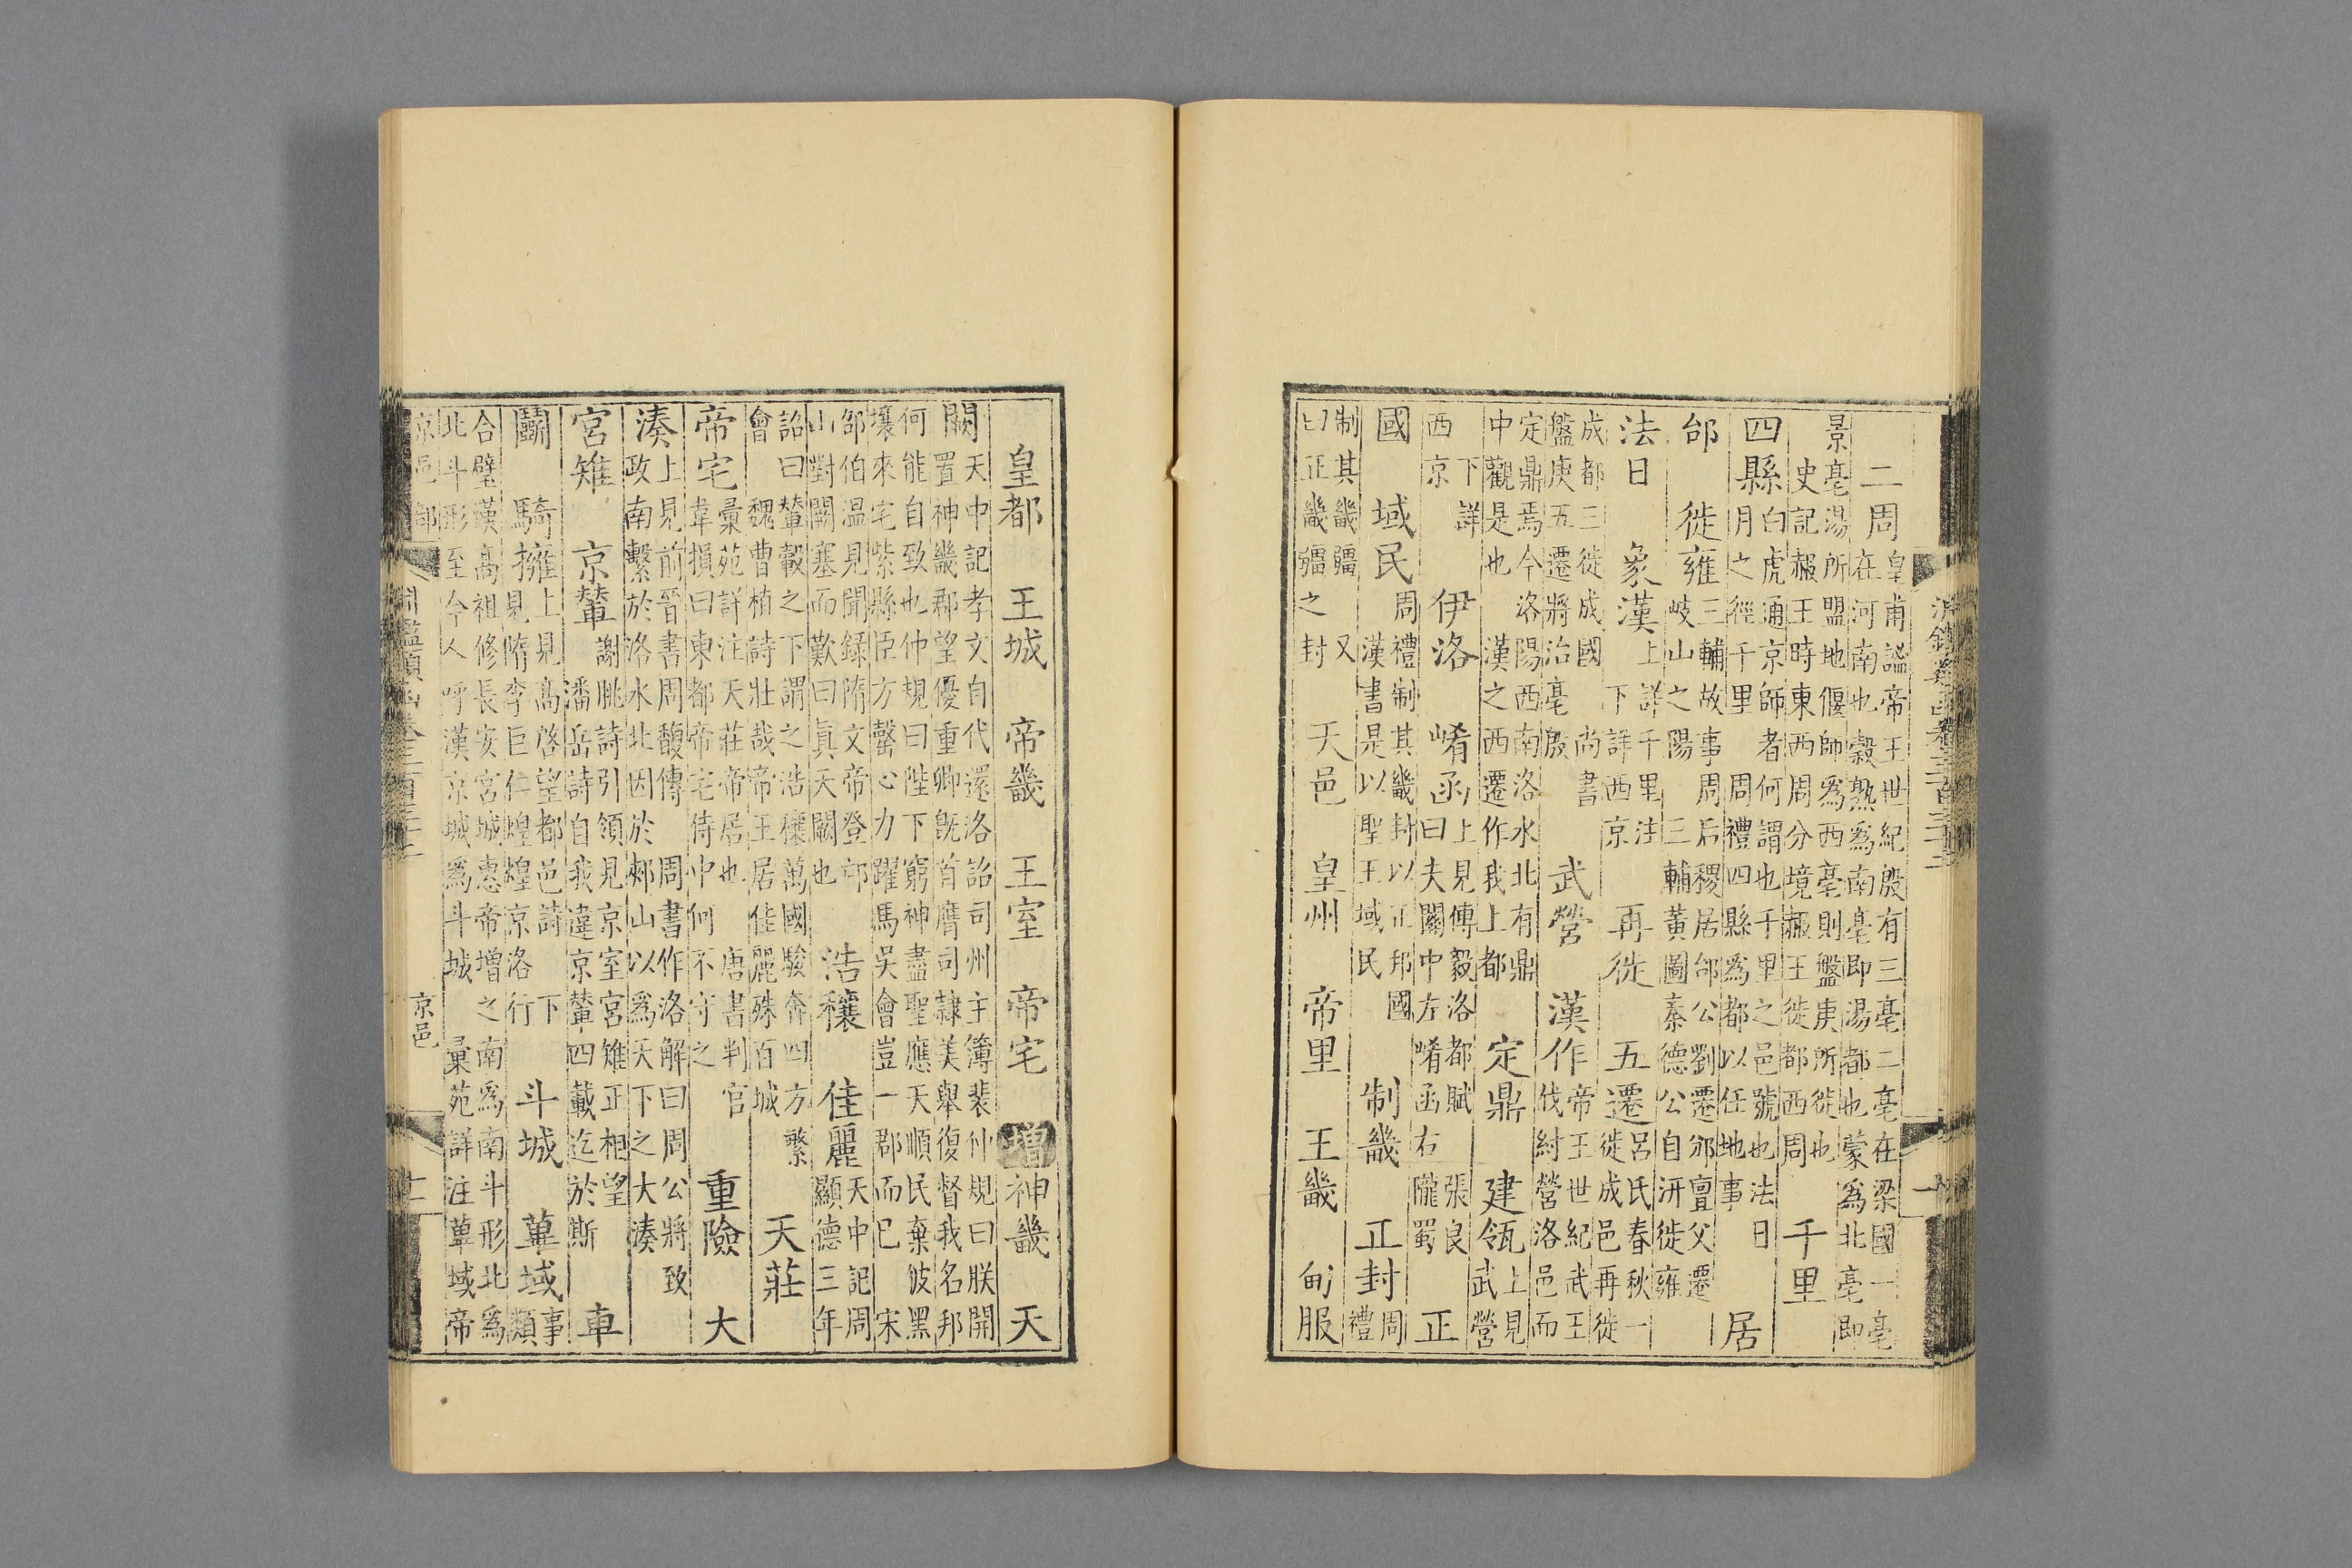 淵鑑類函卷三百三十三 一
二周 皇甫謐帝王世紀殷有三亳二亳在梁國一亳在河南也穀熟爲南亳即湯都也蒙爲北亳即
景亳湯所盟地偃師爲西亳則盤庚所徙也 史記赧王時東西周分境赧王徙都西周 千里
四縣 白虎通京師者何謂也千里之邑號也法日月之徑千里 周禮四縣爲都以任地事 居
邰 徙雍 三輔故事周后稷居邰公劉遷邠亶父遷岐山之陽 三輔黃圖秦德公自汧徙雍
法日 象漢 上詳千里注下詳西京 再徙 五遷 呂氏春秋一徙成邑再徙
成都三徙成國 尚書盤庚五遷將治亳殷 武營 漢作 帝王世紀武王伐紂營洛邑而
定鼎焉今洛陽西南洛水北有鼎中觀是也 漢之西遷作我上都 定鼎 建瓴 上見武營
下詳西京 伊洛 崤函 上見傅毅洛都賦 張良曰夫關中左崤函右隴蜀 正
國 域民 周禮制其畿封以正邦國 漢書是以聖王域民 制畿 正封 周禮
制其畿疆 又曰正畿疆之封 天邑 皇州 帝里 王畿 甸服
皇都 王城 帝畿 王室 帝宅 增神畿 天
闕 天中記孝文自代還洛詔司州主簿裴仲規曰朕開置神畿郡望優重卿旣首膺司隸美舉復督我名邦
何能自致也仲規曰陛下窮神盡聖應天順民棄彼黑壤來宅紫縣臣方罄心力躍馬吳會豈一郡而已 宋
邵伯温見聞録隋文帝登邙山對闕塞而歎曰眞天闕也 浩穰 佳麗 天中記周顯德三年
詔曰輦轂之下謂之浩穰萬國駿奔四方繁會 魏曹植詩壯哉帝王居佳麗殊百城 天莊
帝宅 彙苑詳注天莊帝居也 唐書判官韋損曰東都帝宅侍中何不守之 重險 大
湊 上見前晉書周馥傳 周書作洛解曰周公將致政南繫於洛水北因於郟山以爲天下之大湊
宮雉 京輦 謝朓詩引領見京室宮雉正相望 潘岳詩自我違京輦四載迄於斯 車
鬭 騎擁 上見高啓望都邑詩 下見隋李巨仁煌煌京洛行 斗城 蕇域 事類
合璧漢高祖修長安宮城惠帝增之南爲南斗形北爲北斗形至今人呼漢京城爲斗城 彙苑詳注蕇域帝
淵鑑類函卷三百三十三 京邑
京邑部